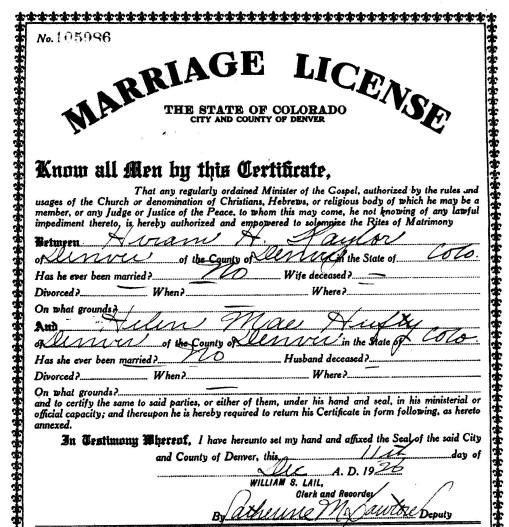 No. 105986
MARRIAGE LICENSE
THE STATE OF COLORADO
CITY AND COUNTY OF DENVER
Know all Men by this Certificate,
That any regularly ordained Minister of the Gospel, authorized by the rules and
usages of the Church or denomination of Christians, Hebrews, or religious body of which he may be a
member, or any Judge or Justice of the Peace, to whom this may come, he not knowing of any lawful
impediment thereto, is hereby authorized and empowered to solemnize the Rites of Matrimony
Between Hiram H. Naylor
of Denver of the County of Denver in the State of Colo.
Has he ever been married? No Wife deceased? —
Divorced? — When? — Where? —
On what grounds? —
And Helen Mae Hufty
of Denver of the County of Denver in the State of Colo.
Has she ever been married? No Husband deceased? —
Divorced? — When? — Where? —
On what grounds? —
and to certify the same to said parties, or either of them, under his hand and seal, in his ministerial or
official capacity; and thereupon he is hereby required to return his Certificate in form following, as hereto
annexed.
In Testimony Whereof, I have hereunto set my hand and affixed the Seal of the said City
and County of Denver, this 11th day of
Dec A. D. 1926
WILLIAM S. LAIL,
Clerk and Recorder
By Catherine M. Deputy